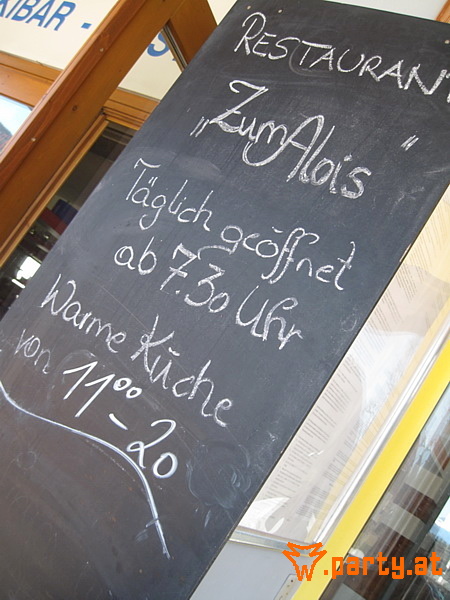 KIBAR -
RESTAURANT
„Zum Alois"
Täglich geöffnet
ab 7.30 Uhr
Warme Küche
von 11⁰⁰ - 20
.party.at